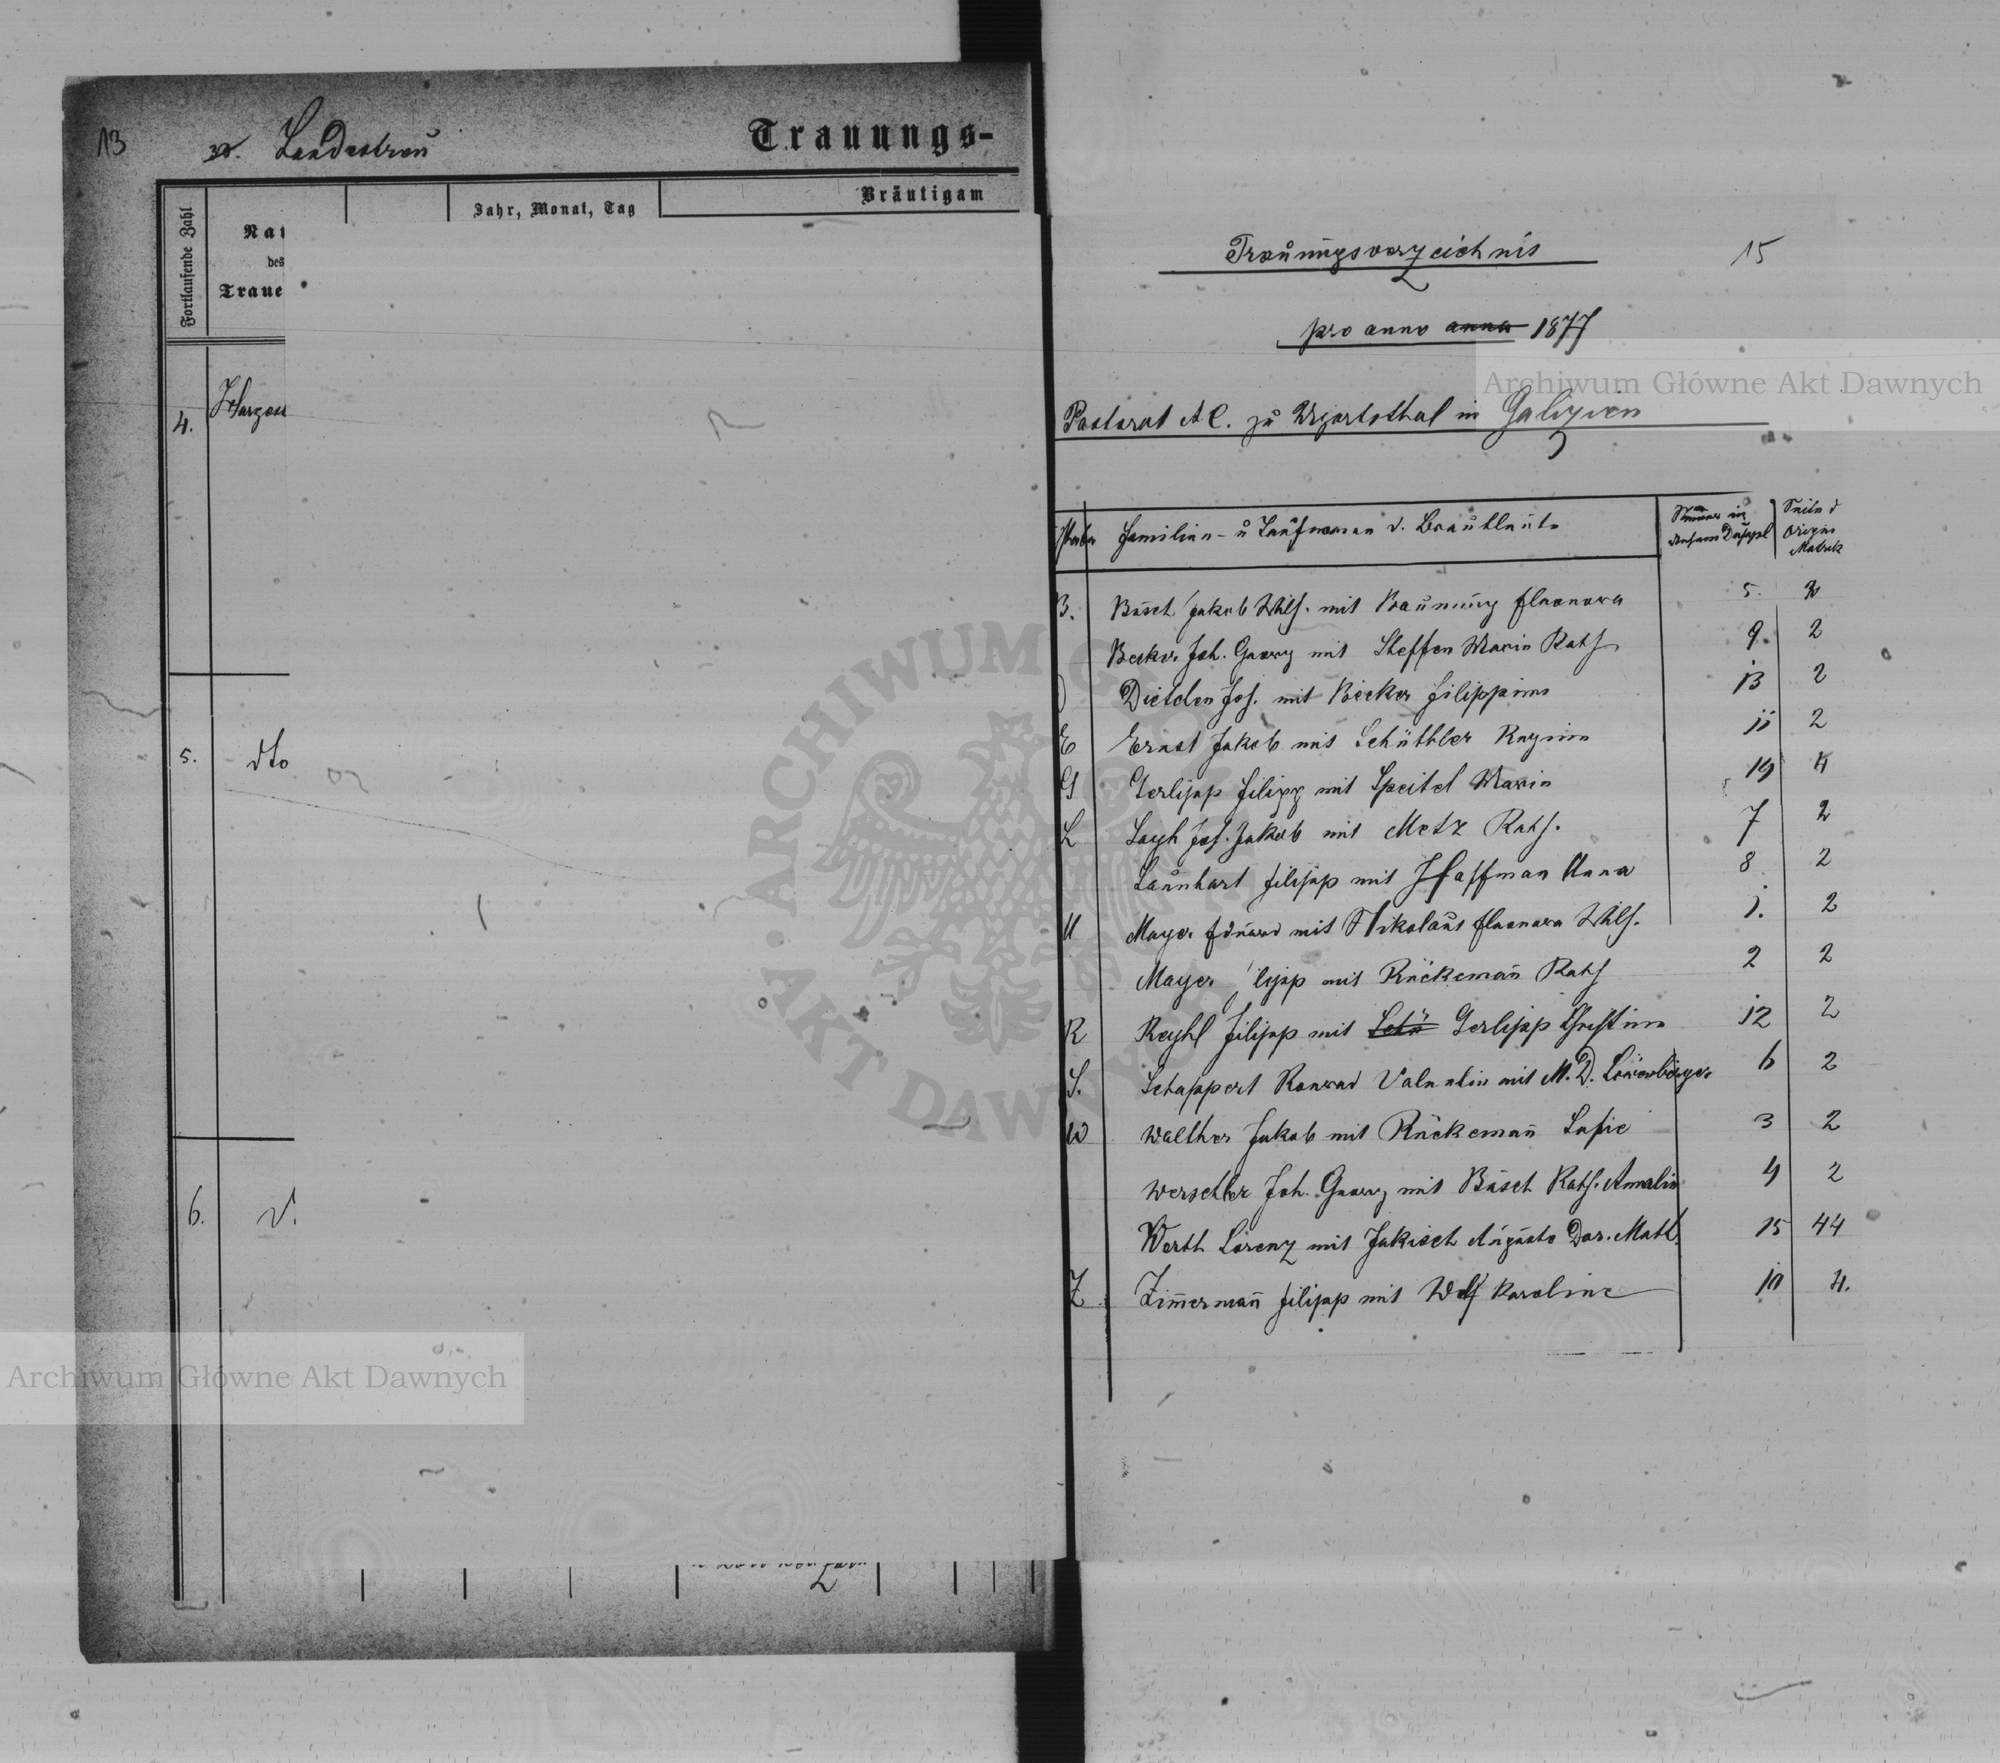 13
Landestreu
Trauungs-
Fortlaufende Zahl
Jahr, Monat, Tag
Bräutigam
Nar
des
Traue
4.
5. dto
6. d.
Trauungsverzeichnis
15
pro anno anno 1877
Pastorat A C. zu Ugartsthal in Galizien
Familien- u Taufnamen d. Brautleute
Seite d Origin Matrik
B. Büsch Jakob Wilh. mit Braunung Eleonora 5. 2
Becker Joh. Georg mit Steffen Marie Kath 9. 2
D Dietelen Joh. mit Becker Filippine 13 2
E Ernst Jakob mit Schüthler Regine 11 2
G Gerlipp Filipp mit Speitel Marie 14 4
L Joh. Jakob mit Metz Kath. 7 2
Launhart Filipp mit Hoffman Anna 8 2
M Mayer Eduard mit Nikolaus Eleonora Wilh. 1. 2
Mayer ilipp mit Rückemañ Kath 2 2
R Reyhl Filipp mit Schü Gerlipp Christine 12 2
S. Schappert Konrad Valentin mit M. D. Löwenberger 6 2
W Walther Jakob mit Rückemañ Sofie 3 2
Werschler Joh. Georg mit Büsch Kath. Amalie 4 2
Werth Lorenz mit Jakisch Auguste Dor. Math. 15 44
Z Zim̄ermañ Filipp mit Wolf Karoline 10 4.
Archiwum Główne Akt Dawnych
Archiwum Główne Akt Dawnych
ARCHIWUM G
AKT DAWNYCH